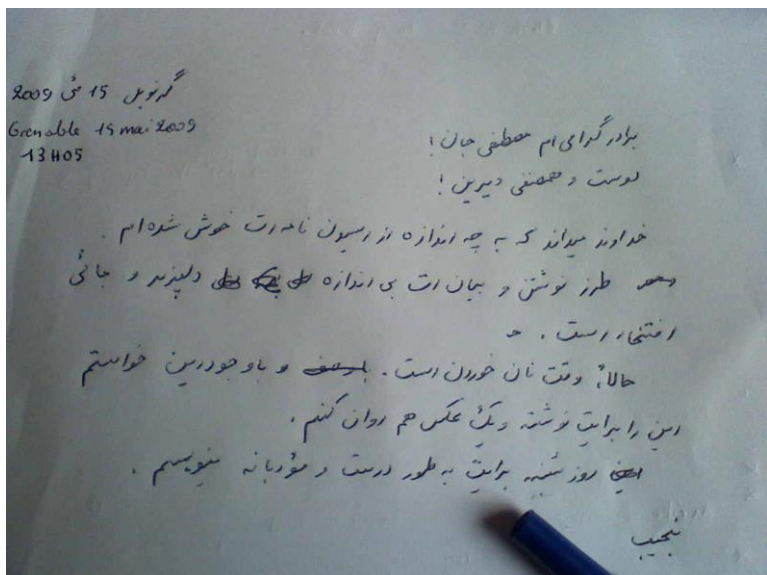 گرنوبل 15 مئ 2009
Grenoble 15 mai 2009
13H05
برادر گرامی ام مصطفی جان!
دوست و همصنفی دیرین!
خداوند میداند که به چه اندازه از رسیدن نامه ات خوش شده ام.
طرز نوشتن و بیان ات بی اندازه دلپزیر و جائی
افتخار است.
حالا، وقت نان خوردن است. و باوجود این خواستم
این را برایت نوشته و یک عکس هم روان کنم.
روز شنبه برایت به طور درست و مؤدبانه مینویسم.
نجیب